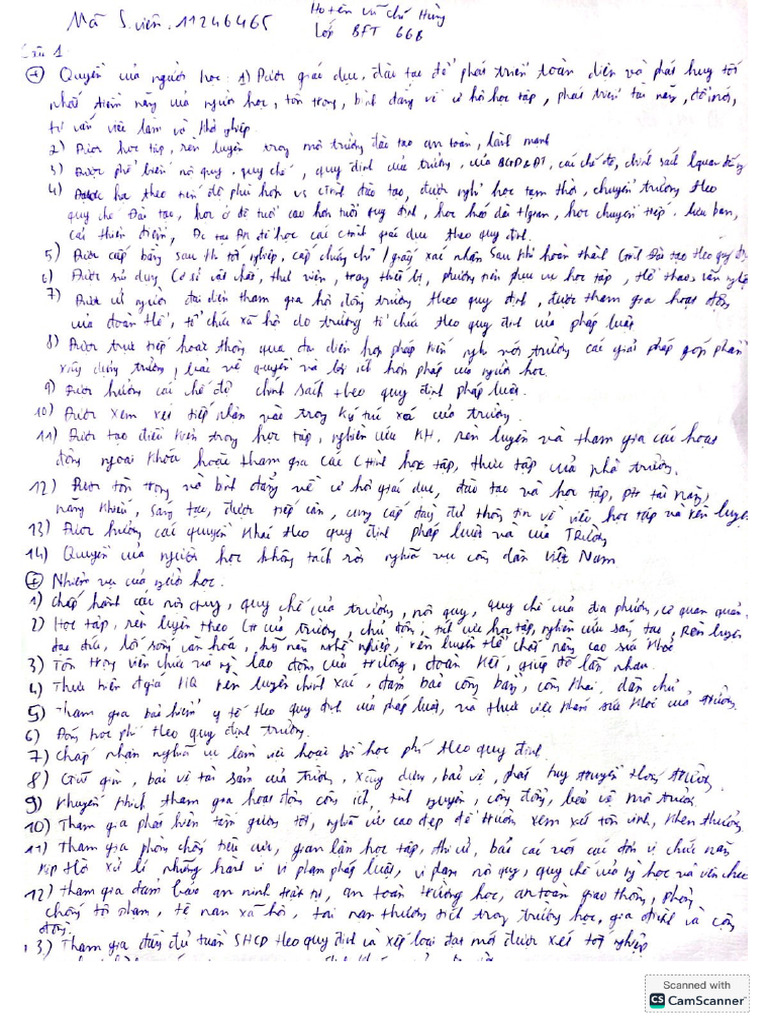 Mã S.viên. 11246465
Họ tên Vũ Chí Hùng
Lớp BFT 66B
Câu 1
+ Quyền của người học: 1) Được giáo dục, đào tạo để phát triển toàn diện và phát huy tốt
nhất tiềm năng của người học, tôn trọng, bình đẳng về cơ hội học tập, phát triển tài năng, đổi mới,
tư vấn việc làm và khởi nghiệp.
2) Được học tập, rèn luyện trong môi trường đào tạo an toàn, lành mạnh
3) Được phổ biến nội quy, quy chế, quy định của trường, của BGD&ĐT, các chế độ, chính sách
4) học theo tiến độ phù hợp vs ctrình đào tạo, được nghỉ học tạm thời, chuyển trường theo
quy chế Đào tạo, học ở độ tuổi cao hơn tuổi quy định, học kéo dài tgian, học chuyển tiếp. lưu ban,
để học các ctrình giáo dục theo quy định.
5) Được cấp bằng sau khi tốt nghiệp, cấp chứng chỉ / giấy xác nhận sau khi hoàn thành Ctrình Đào tạo theo quy định
6) Được sử dụng cơ sở vật chất, thư viện, trang thiết bị, phương tiện phục vụ học tập, thể thao, văn nghệ
7) Được cử người đại diện tham gia hội đồng trường theo quy định, được tham gia hoạt động
của đoàn thể, tổ chức xã hội do trường tổ chức theo quy định của pháp luật
8) Được trực tiếp hoặc thông qua đại diện hợp pháp kiến nghị với trường các giải pháp góp phần
xây dựng trường, bảo vệ quyền và lợi ích hợp pháp của người học.
9) Được hưởng các chế độ chính sách theo quy định pháp luật.
10) Được xem xét tiếp nhận vào trong ký túc xá của trường.
11) Được tạo điều kiện trong học tập, nghiên cứu KH, rèn luyện và tham gia các hoạt
động ngoại khóa hoặc tham gia các Ctrình học tập, thực tập của nhà trường.
12) Được tôn trọng và bình đẳng về cơ hội giáo dục, đào tạo và học tập, PH tài năng,
năng khiếu, sáng tạo, được tiếp cận, cung cấp đầy đủ thông tin về việc học tập và rèn luyện
13) Được hưởng các quyền khác theo quy định pháp luật và của Trường
14) Quyền của người học không tách rời nghĩa vụ công dân Việt Nam
+ Nhiệm vụ của người học.
1) Chấp hành các nội quy, quy chế của trường, nội quy, quy chế của địa phương, cơ quan quản
2) Học tập, rèn luyện theo CH của trường, chủ động, tích cực học tập, nghiên cứu sáng tạo, rèn luyện
đạo đức, lối sống văn hóa, kỹ năng nghề nghiệp, rèn luyện thể chất nâng cao sức khỏe
3) Tôn trọng viên chức và ng lao động của trường, đoàn kết, giúp đỡ lẫn nhau.
4) Thực hiện đgiá KQ rèn luyện chính xác, đảm bảo công bằng, công khai, dân chủ
5) Tham gia bảo hiểm y tế theo quy định của pháp luật, và thực việc khám sức khỏe của trường.
6) Đóng học phí theo quy định trường.
7) Chấp nhận nghĩa vụ làm việc hoặc bồi học phí theo quy định.
8) Giữ gìn, bảo vệ tài sản của trường, xây dựng, bảo vệ, phát huy truyền thống trường.
9) Khuyến khích tham gia hoạt động công ích, tình nguyện, cộng đồng, bảo vệ môi trường.
10) Tham gia phát hiện tấm gương tốt, nghĩa cử cao đẹp để trường xem xét tôn vinh, khen thưởng.
11) Tham gia phòng chống tiêu cực, gian lận học tập, thi cử, báo cáo với các đơn vị chức năng
kịp thời xử lí những hành vi vi phạm pháp luật, vi phạm nội quy, quy chế của ng học và viên chức
12) Tham gia đảm bảo an ninh trật tự, an toàn trường học, an toàn giao thông, phòng
chống tội phạm, tệ nạn xã hội, tai nạn thương tích trong trường học, gia đình và cộng
đồng.
13) Tham gia đầy đủ tuần SHCD theo quy định và xếp loại đạt mới được xét tốt nghiệp
Scanned with
CS CamScanner